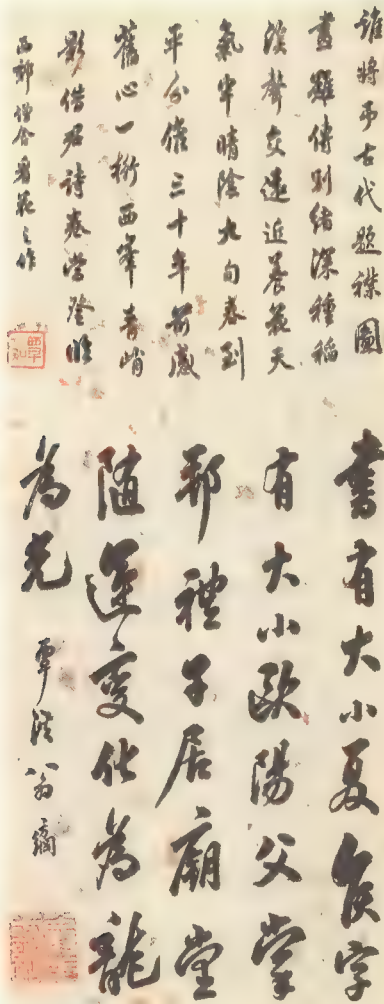 誰將弔古代題襟圖
畫雖傳別緒深種稻
溪聲交遠近養花天
氣半晴陰九旬春到
平分候三十年前感
舊心一桁西峯青峭
影借君詩卷當登臨
西郊僧舍看花之作
書有大小夏侯字
有大小歐陽父掌
邦禮子居廟堂
隨運變化為龍
為光
覃溪翁方綱